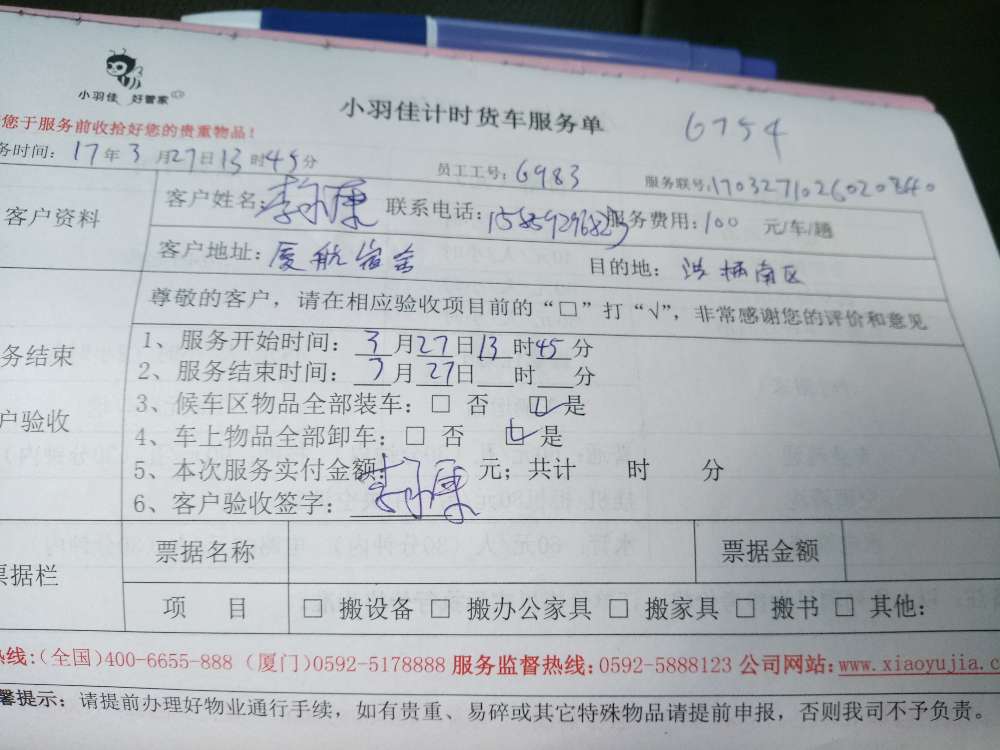 小羽佳 好管家
小羽佳计时货车服务单 6754
您于服务前收拾好您的贵重物品！
务时间：17年3月27日13时45分 员工工号：6983 服务联号：
客户资料
客户姓名： 联系电话： 服务费用：100 元/车/趟
客户地址：厦航宿舍 目的地： 南区
尊敬的客户，请在相应验收项目前的“□”打“√”，非常感谢您的评价和意见
务结束
户验收
1、服务开始时间：3月27日13时45分
2、服务结束时间：3月27日 时 分
3、候车区物品全部装车：□ 否 ☑是
4、车上物品全部卸车：□ 否 ☑是
5、本次服务实付金额： 元；共计 时 分
6、客户验收签字：
票据栏
票据名称 票据金额
项 目 □ 搬设备 □ 搬办公家具 □ 搬家具 □ 搬书 □ 其他：
热线:(全国)400-6655-888 (厦门)0592-5178888 服务监督热线:0592-5888123 公司网站:www.xiaoyujia.c
馨提示：请提前办理好物业通行手续，如有贵重、易碎或其它特殊物品请提前申报，否则我司不予负责。